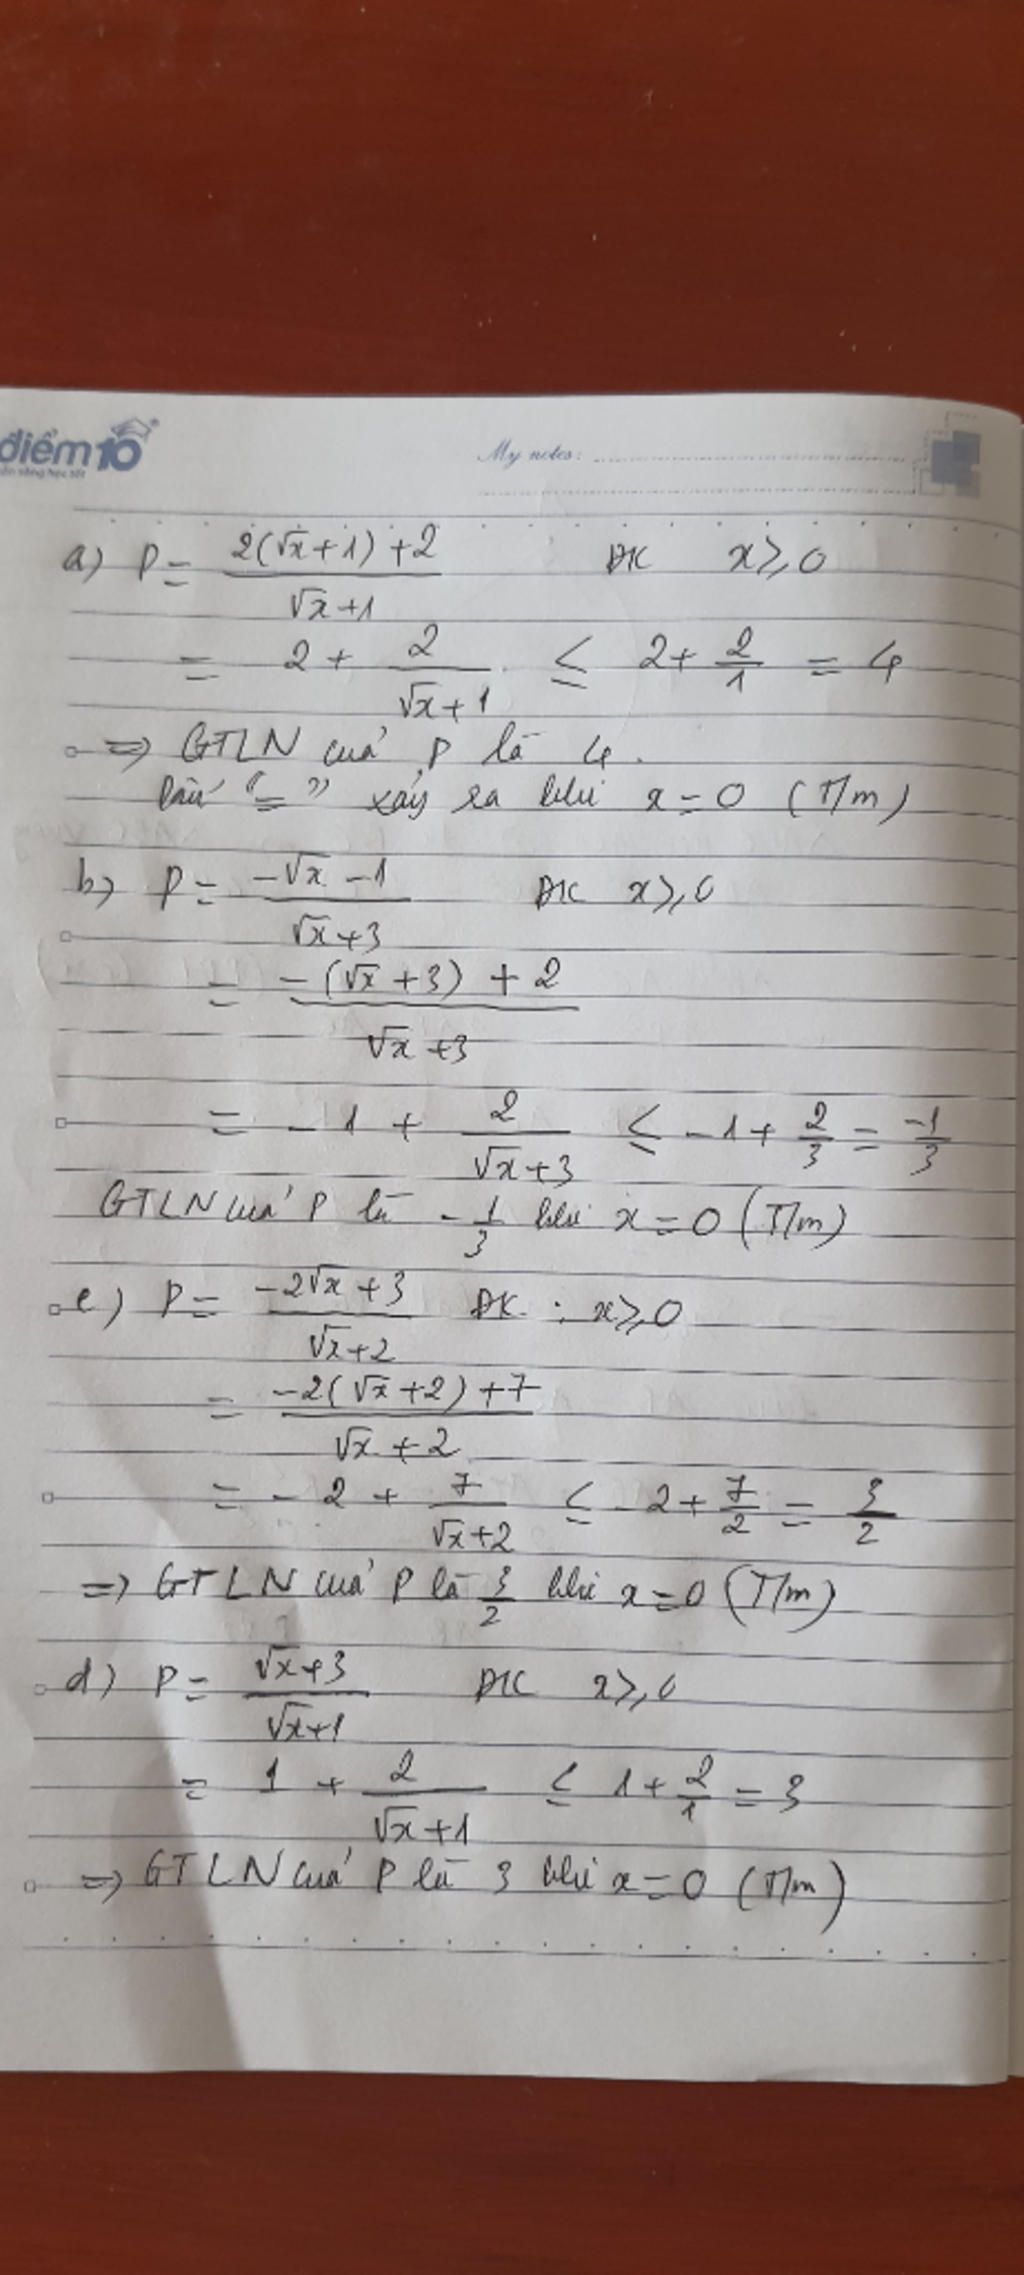 điểm10
My notes:
a) P = \frac{2(\sqrt{x}+1)+2}{\sqrt{x}+1} ĐK x ≥ 0
= 2 + \frac{2}{\sqrt{x}+1} ≤ 2 + \frac{2}{1} = 4
=> GTLN của P là 4.
Dấu "=" xảy ra khi x = 0 (T/m)
b) P = \frac{-\sqrt{x}-1}{\sqrt{x}+3} ĐK x ≥ 0
= \frac{-(\sqrt{x}+3)+2}{\sqrt{x}+3}
= -1 + \frac{2}{\sqrt{x}+3} ≤ -1 + \frac{2}{3} = \frac{-1}{3}
GTLN của P là -\frac{1}{3} khi x = 0 (T/m)
c) P = \frac{-2\sqrt{x}+3}{\sqrt{x}+2} ĐK : x ≥ 0
= \frac{-2(\sqrt{x}+2)+7}{\sqrt{x}+2}
= -2 + \frac{7}{\sqrt{x}+2} ≤ -2 + \frac{7}{2} = \frac{3}{2}
=> GTLN của P là \frac{3}{2} khi x = 0 (T/m)
d) P = \frac{\sqrt{x}+3}{\sqrt{x}+1} ĐK x ≥ 0
= 1 + \frac{2}{\sqrt{x}+1} ≤ 1 + \frac{2}{1} = 3
=> GTLN của P là 3 khi x = 0 (T/m)